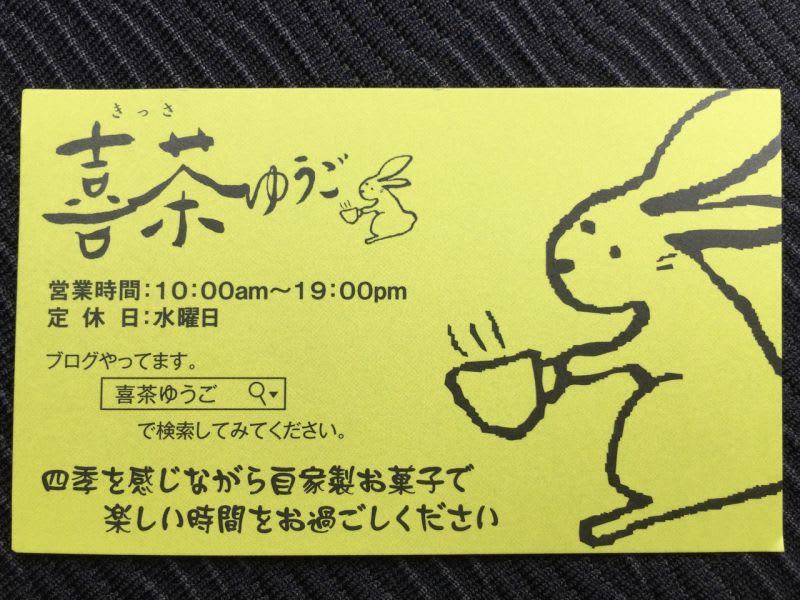 きっさ
喜茶ゆうご
営業時間：10:00am〜19:00pm
定 休 日：水曜日
ブログやってます。
喜茶ゆうご
で検索してみてください。
四季を感じながら自家製お菓子で
楽しい時間をお過ごしください